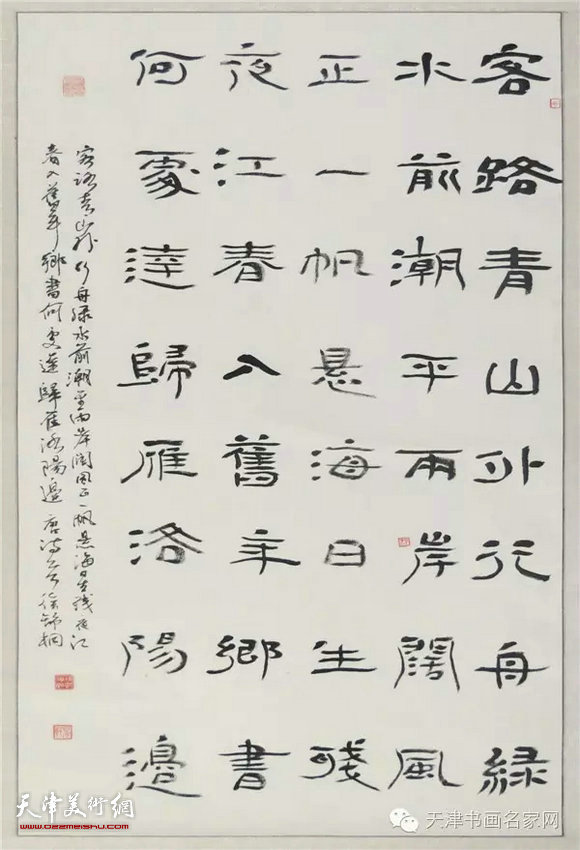 客路青山外行舟綠
水前潮平兩岸闊風
正一帆懸海日生殘
夜江春入舊年鄉書
何處達歸雁洛陽邊
客路青山外行舟緑水前潮平兩岸闊風正一帆懸海日生殘夜江
春入舊年鄉書何處達歸雁洛陽邊 唐詩一首 徐錦桐
天津美術網
www.022meishu.com
天津书画名家网